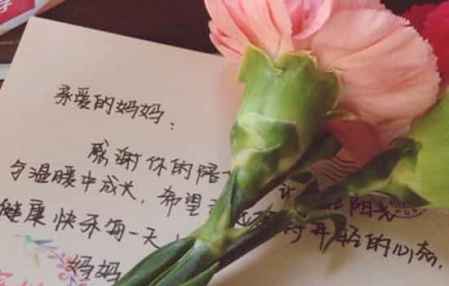 亲爱的妈妈：
感谢你的陪 让 阳光
与温暖中成长，希望 年轻的心态，
健康快乐每一天！
妈妈